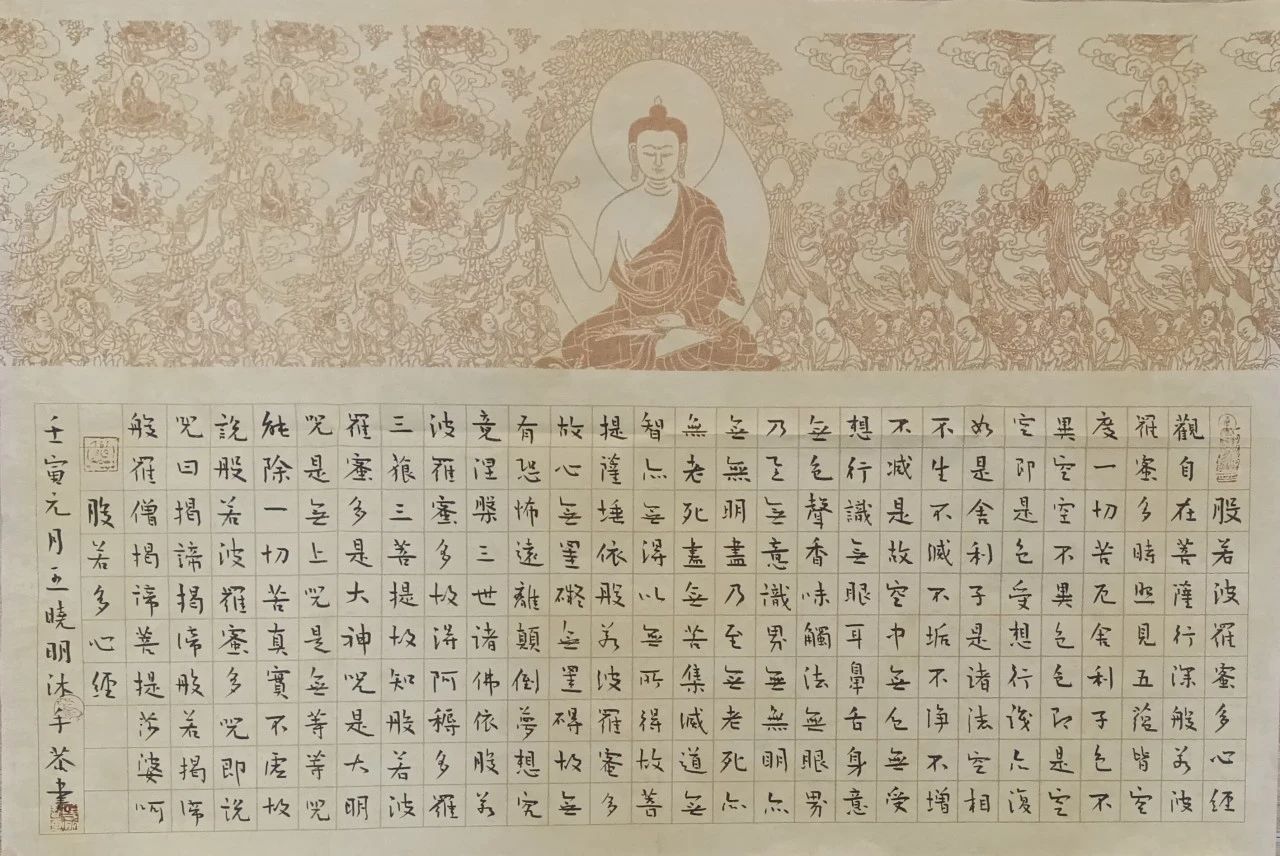 般若波羅蜜多心經
觀自在菩薩行深般若波
羅蜜多時照見五蘊皆空
度一切苦厄舍利子色不
異空空不異色色即是空
空即是色受想行識亦復
如是舍利子是諸法空相
不生不滅不垢不淨不增
不減是故空中無色無受
想行識無眼耳鼻舌身意
無色聲香味觸法無眼界
乃至無意識界無無明亦
無無明盡乃至無老死亦
無老死盡無苦集滅道無
智亦無得以無所得故菩
提薩埵依般若波羅蜜多
故心無罣礙無罣碍故無
有恐怖遠離顛倒夢想究
竟涅槃三世諸佛依般若
波羅蜜多故得阿耨多羅
三藐三菩提故知般若波
羅蜜多是大神咒是大明
咒是無上咒是無等等咒
能除一切苦真實不虛故
說般若波羅蜜多咒即說
咒曰揭諦揭諦般若揭諦
般羅僧揭諦菩提莎婆呵
般若多心經
壬寅元月五曉明沐手恭書